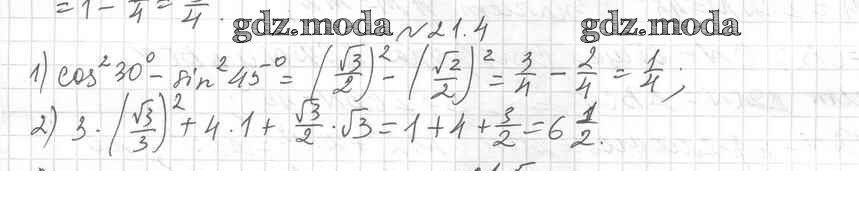 = 1 - /4 = /4.
gdz.moda №21.4 gdz.moda
1) cos²30° - sin²45° = (√3/2)² - (√2/2)² = 3/4 - 2/4 = 1/4;
2) 3 · (√3/3)² + 4 · 1 + √3/2 · √3 = 1 + 4 + 3/2 = 6 1/2.